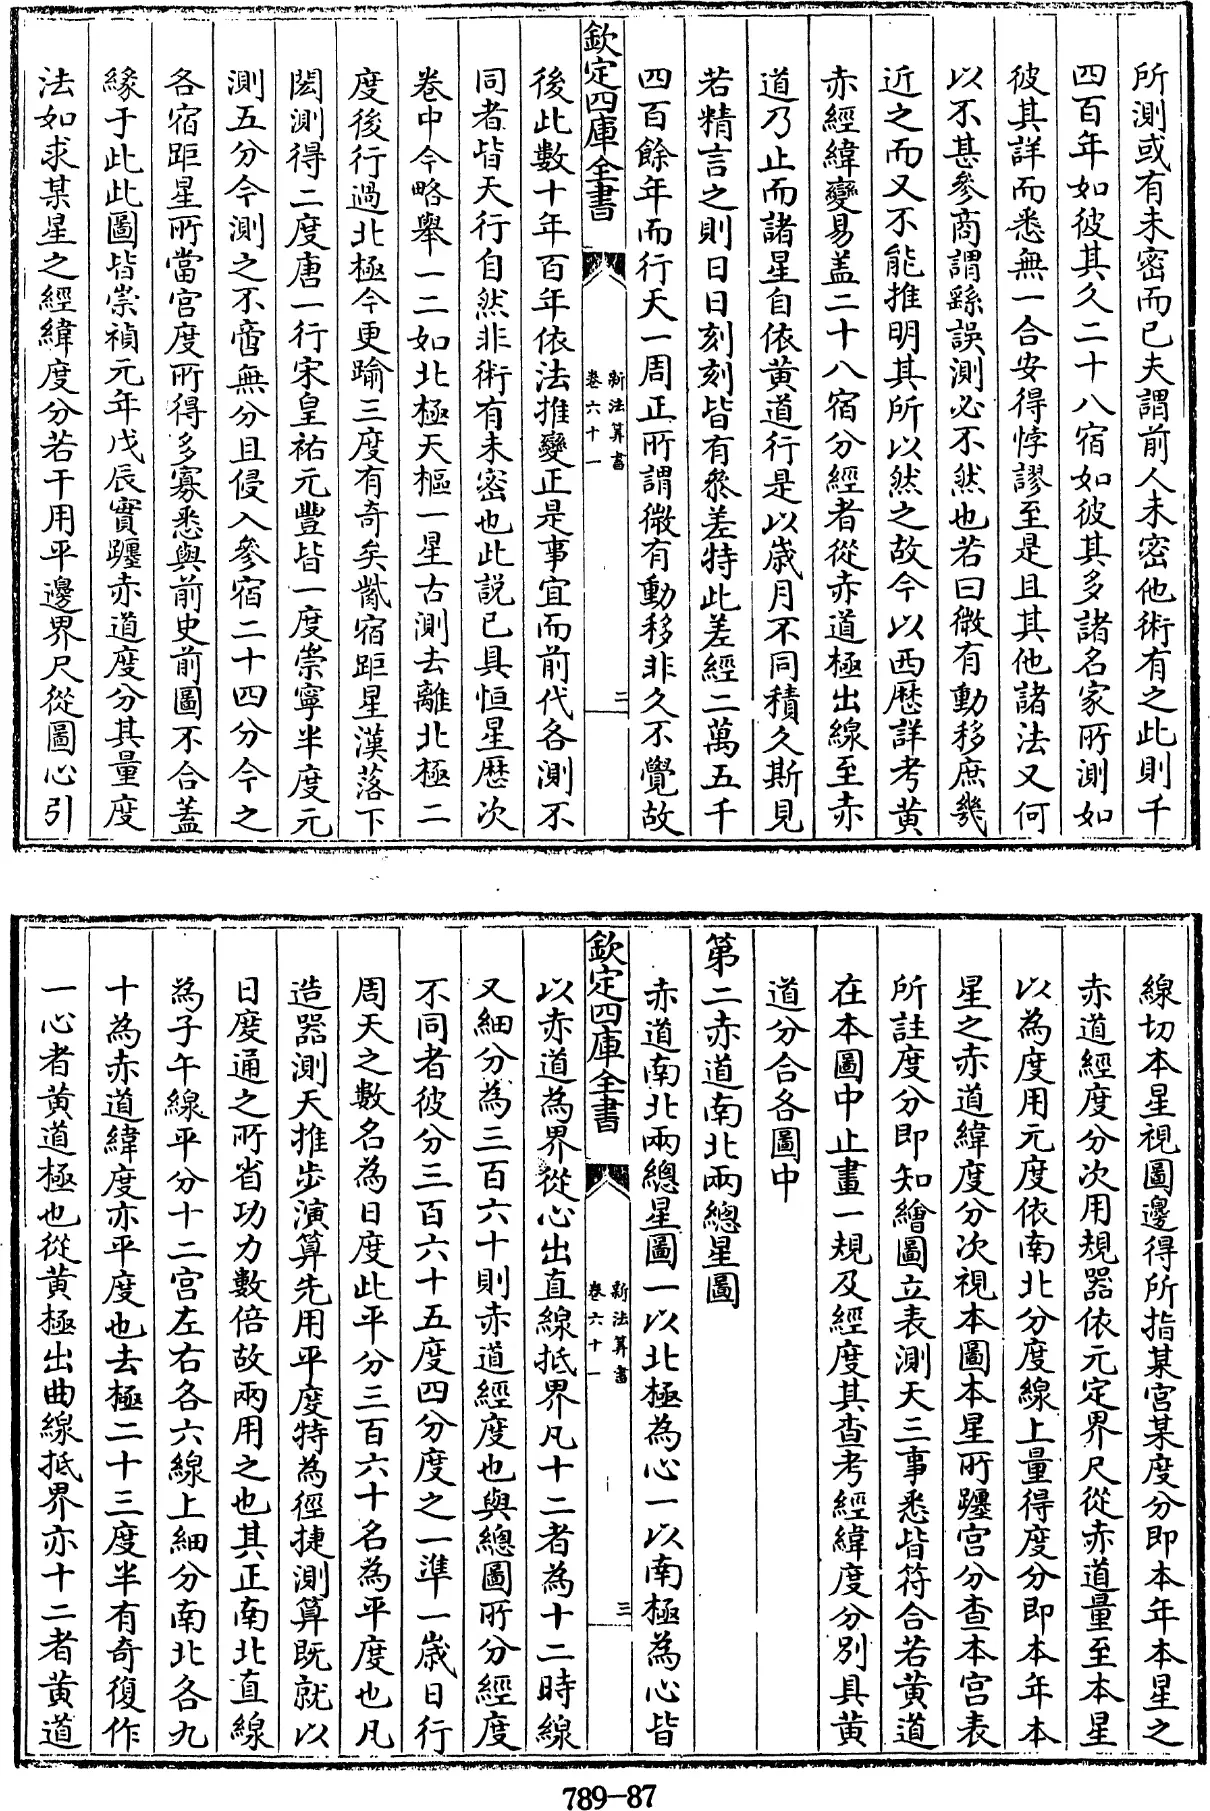 所測或有未密而已夫謂前人未密他術有之此則千
四百年如彼其久二十八宿如彼其多諸名家所測如
彼其詳而悉無一合安得悖謬至是且其他諸法又何
以不甚參商謂繇誤測必不然也若曰微有動移庶幾
近之而又不能推明其所以然之故今以西厯詳考黄
赤經緯變易盖二十八宿分經者從赤道極出線至赤
道乃止而諸星自依黄道行是以歳月不同積久斯見
若精言之則日日刻刻皆有叅差特此差經二萬五千
四百餘年而行天一周正所謂微有動移非久不覺故
欽定四庫全書
新法算書
卷六十一
二
後此數十年百年依法推變正是事宜而前代各測不
同者皆天行自然非術有未密也此説已具恒星厯次
卷中今略舉一二如北極天樞一星古測去離北極二
度後行過北極今更踰三度有奇矣觜宿距星漢落下
閎測得二度唐一行宋皇祐元豐皆一度崇寧半度元
測五分今測之不啻無分且侵入參宿二十四分今之
各宿距星所當宫度所得多寡悉與前史前圖不合盖
緣于此此圖皆崇禎元年戊辰實躔赤道度分其量度
法如求某星之經緯度分若干用平邊界尺從圖心引
線切本星視圖邊得所指某宫某度分即本年本星之
赤道經度分次用規器依元定界尺從赤道量至本星
以為度用元度依南北分度線上量得度分即本年本
星之赤道緯度分次視本圖本星所躔宫分查本宫表
所註度分即知繪圖立表測天三事悉皆符合若黄道
在本圖中止畫一規及經度其查考經緯度分别具黄
道分合各圖中
第二赤道南北兩總星圖
赤道南北兩總星圖一以北極為心一以南極為心皆
欽定四庫全書
新法算書
卷六十一
三
以赤道為界從心出直線抵界凡十二者為十二時線
又細分為三百六十則赤道經度也與總圖所分經度
不同者彼分三百六十五度四分度之一準一歳日行
周天之數名為日度此平分三百六十名為平度也凡
造器測天推步演算先用平度特為徑捷測算既就以
日度通之所省功力數倍故兩用之也其正南北直線
為子午線平分十二宫左右各六線上細分南北各九
十為赤道緯度亦平度也去極二十三度半有奇復作
一心者黄道極也從黄極出曲線抵界亦十二者黄道
789-87